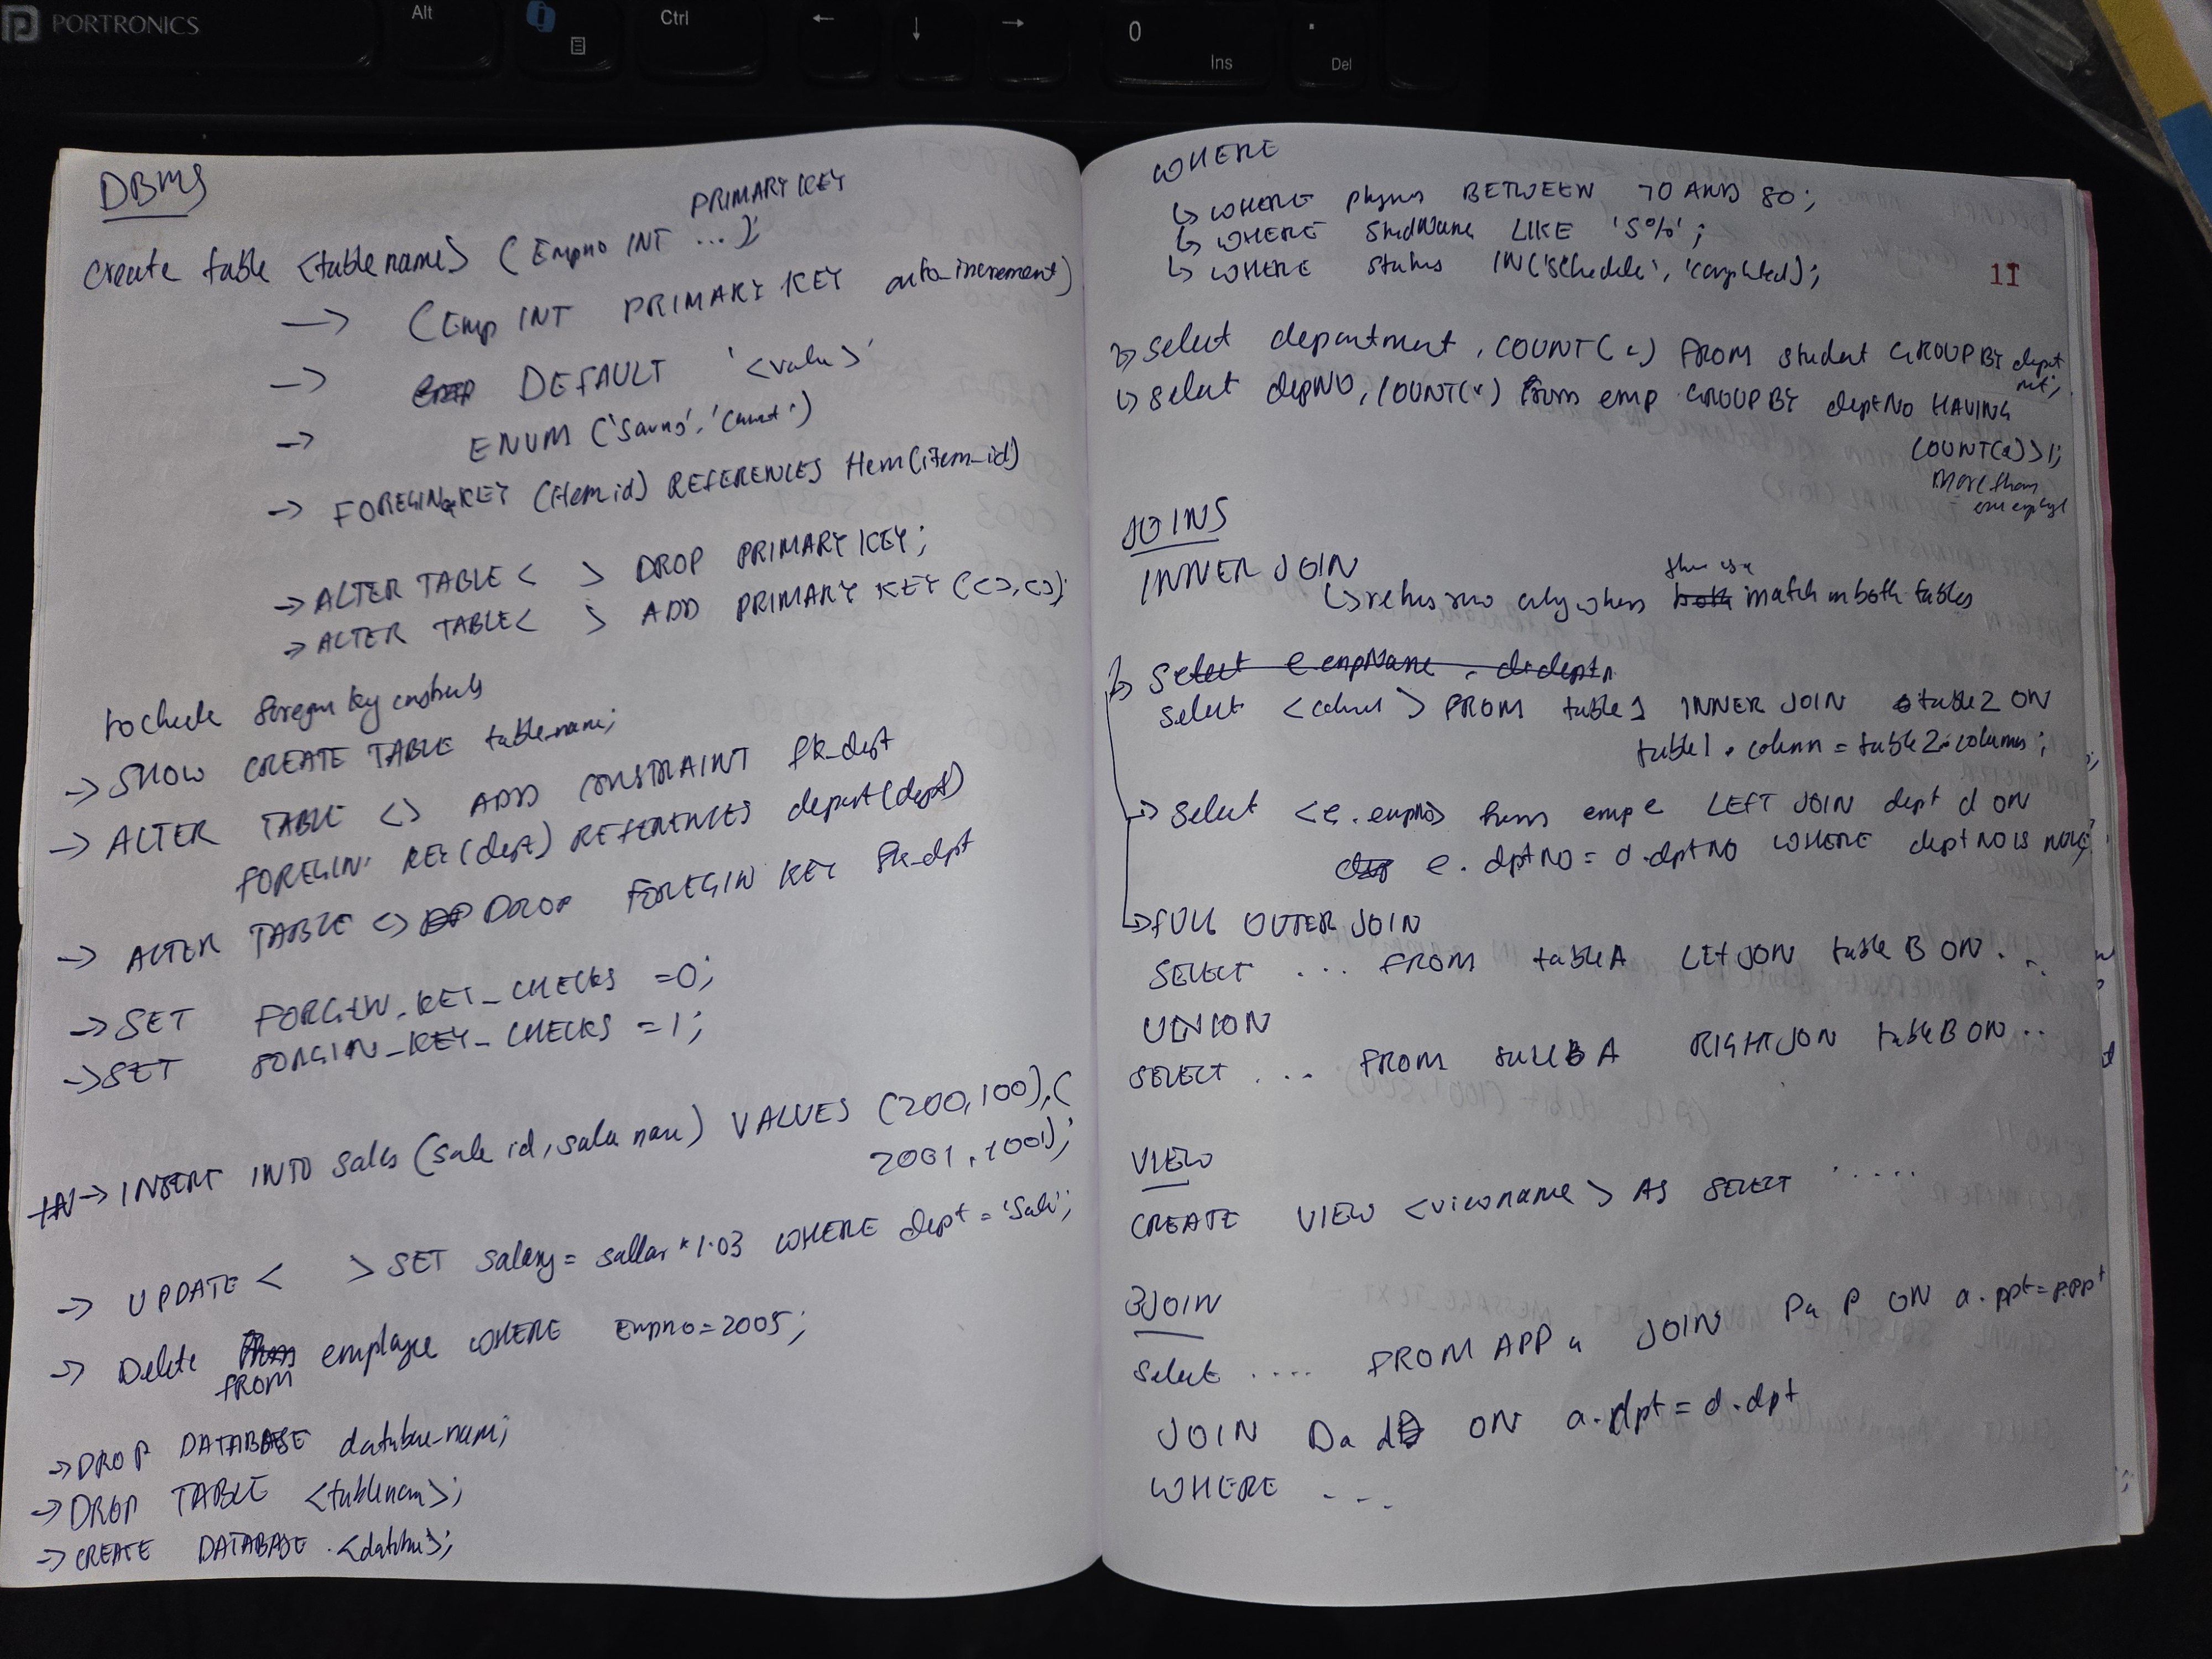 DBMS
PRIMARY KEY
create table <table name> (Empno INT ...);
→ (Emp INT PRIMARY KEY auto_increment)
→ DEFAULT '<value>'
→ ENUM ('Saving', 'Current')
→ FOREGIN KEY (item id) REFERENCES Item(item_id)
→ ALTER TABLE < > DROP PRIMARY KEY;
→ ALTER TABLE < > ADD PRIMARY KEY (<>,<>);
to check foregn key
→ SHOW CREATE TABLE tablename;
→ ALTER TABLE <> ADD CONSTRAINT fk_dept
FOREGIN KEY (dept) REFERENCES dept(dept)
→ ALTER TABLE <> DROP FOREGIN KEY fk_dpt
→ SET FOREGIN_KEY_CHECKS =0;
→ SET FOREGIN_KEY_CHECKS =1;
→ INSERT INTO sales (sale id, sale nam) VALUES (200,100),(
2001,1001);
→ UPDATE < > SET salary = sallar *1.03 WHERE dept = 'Sale';
→ Delete FROM employe WHERE Empno=2005;
→ DROP DATABASE database name;
→ DROP TABLE <tablenam>;
→ CREATE DATABASE <databas>;
WHERE
↳ WHERE phyms BETWEEN 70 AND 80;
↳ WHERE StudName LIKE 'S%';
↳ WHERE status IN('schedule', 'completed');
11
↳ select department, COUNT(*) FROM student GROUP BY dept
↳ select deptNO, COUNT(*) from emp GROUP BY deptNo HAVING
COUNT(*)>1;
more than
one employe
JOINS
INNER JOIN
↳ returns row only when there is a match in both tables
select <column> FROM table1 INNER JOIN table2 ON
table1.column = table2.column;
→ select <e.empno> from emp e LEFT JOIN dept d ON
e.dptNo = d.dptNo WHERE deptNo is null;
→ FULL OUTER JOIN
SELECT ... FROM tableA LEFT JOIN table B ON ..
UNION
SELECT ... FROM tableA RIGHT JOIN tableB ON ..
VIEW
CREATE VIEW <viewname> AS SELECT .....
3JOIN
select .... FROM APP a JOIN Pa P ON a.APPt=APPt
JOIN Da d ON a.dpt = d.dpt
WHERE ...
PORTRONICS
Alt
Ctrl
←
↓
→
0
Ins
.
Del